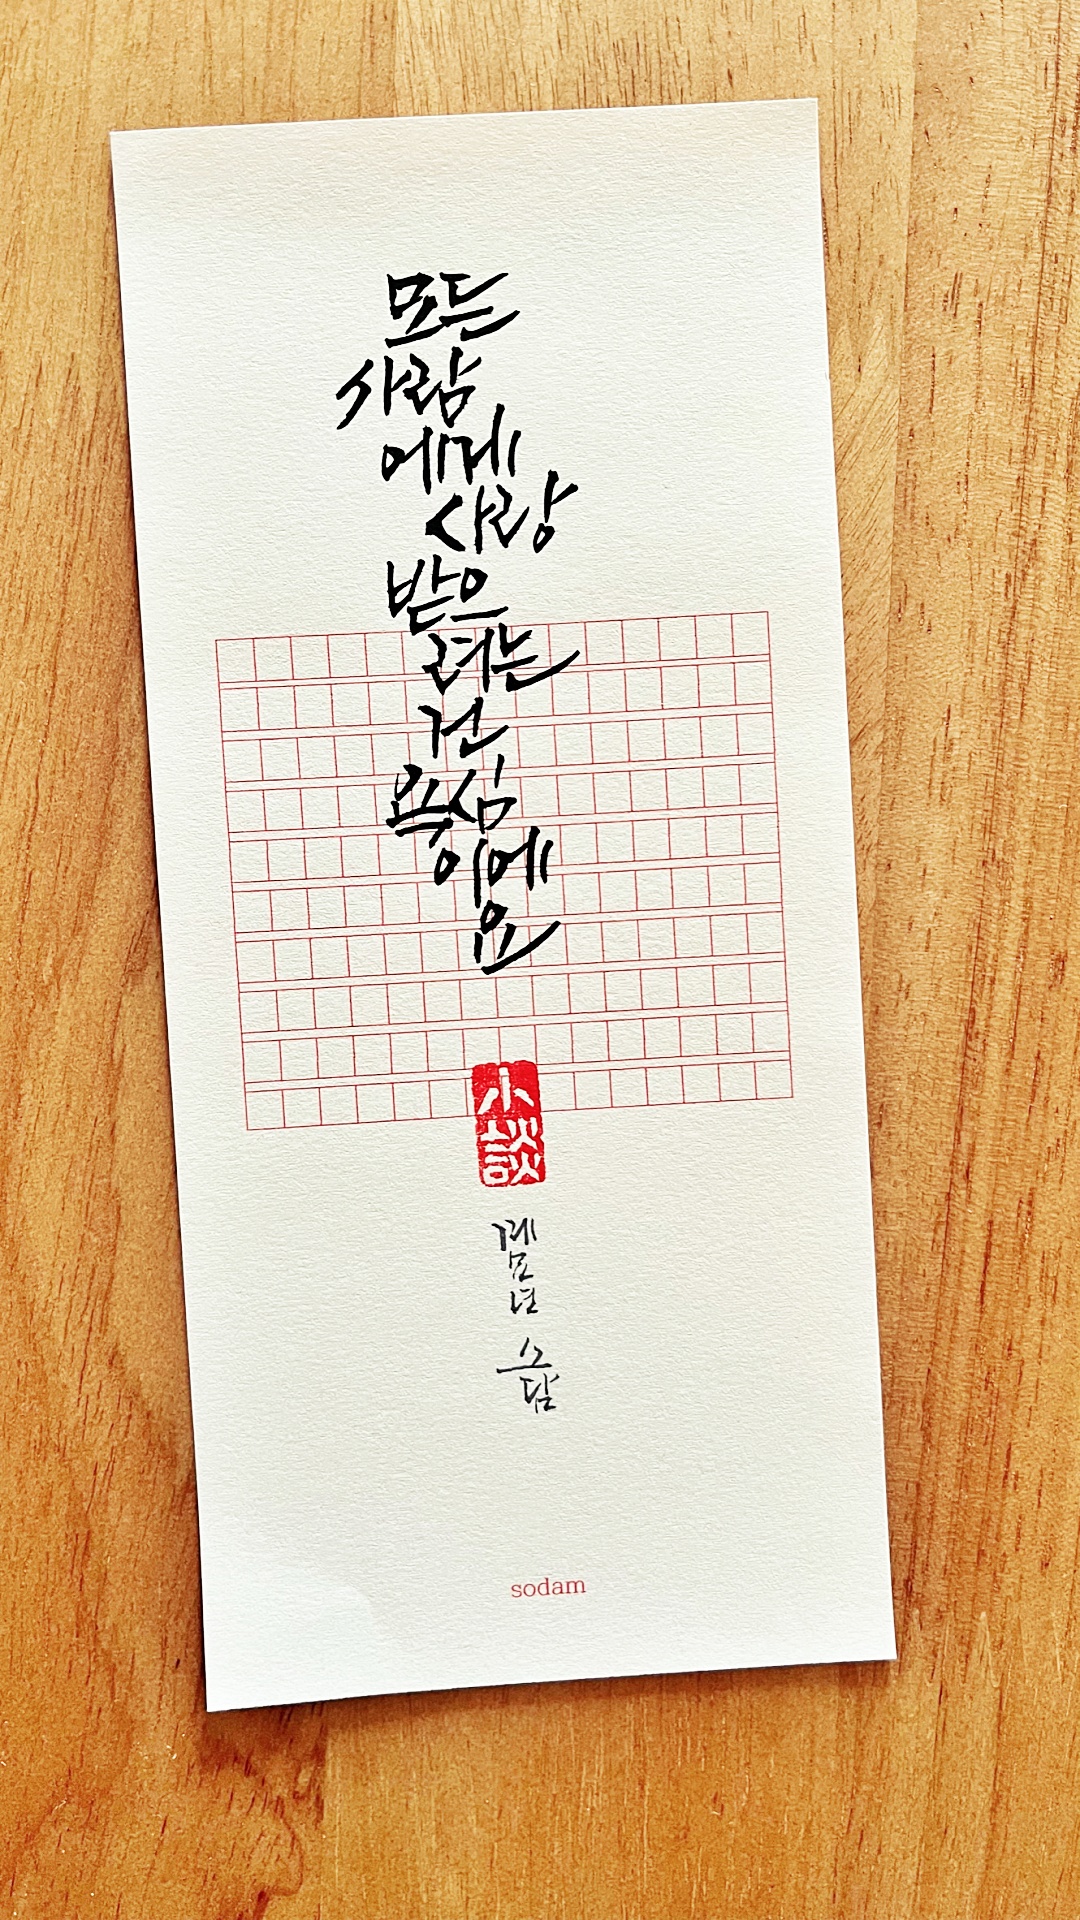 모든
사람
에게
사랑
받으
려는
건
욕심
이에
요
小
談
계
묘
년
소
담
sodam